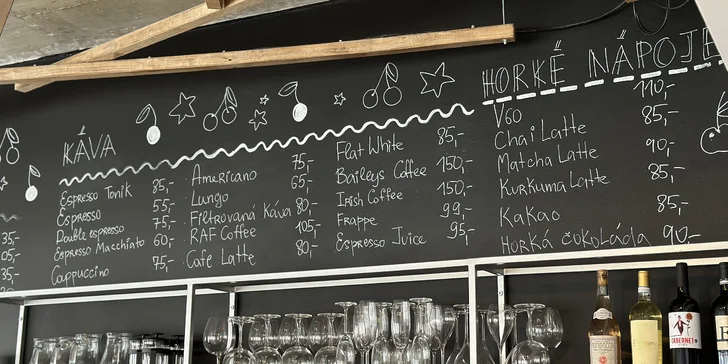 KÁVA
Espresso Tonik 85,-
Espresso 55,-
Double espresso 75,-
Espresso Macchiato 60,-
Cappuccino 75,-
Americano 75,-
Lungo 65,-
Filtrovaná káva 80,-
RAF Coffee 105,-
Cafe Latte 80,-
Flat White 85,-
Baileys Coffee 150,-
Irish Coffee 150,-
Frappe 99,-
Espresso Juice 95,-
HORKÉ NÁPOJE
V60 110,-
Chai Latte 85,-
Matcha Latte 90,-
Kurkuma Latte 85,-
Kakao 85,-
HORKÁ ČOKOLÁDA 90,-
35,-
05,-
35,-
CABERNET